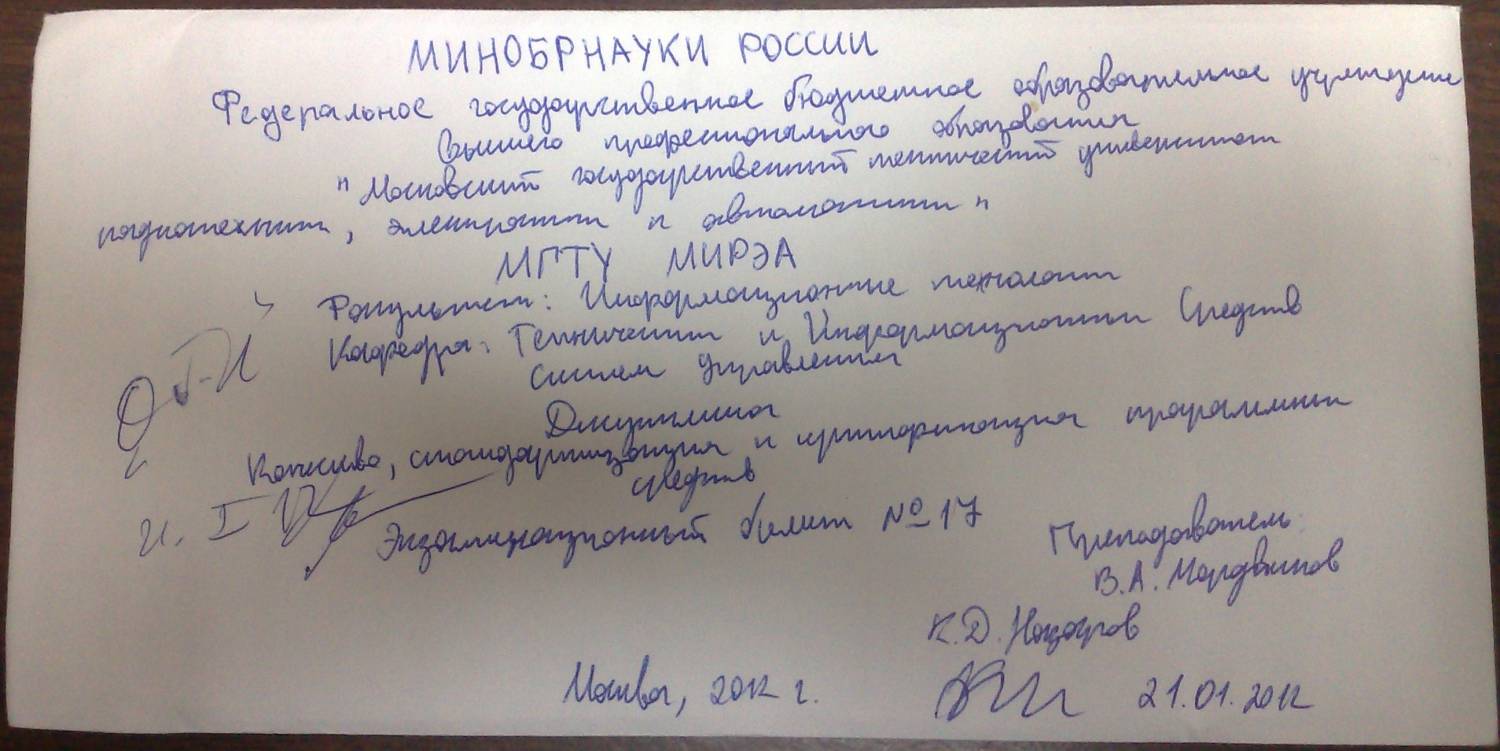 МИНОБРНАУКИ РОССИИ
Федеральное государственное бюджетное образовательное учреждение
Высшего профессионального образования
"Московский государственный технический университет
радиотехники, электроники и автоматики"
МГТУ МИРЭА
Факультет: Информационные технологии
Кафедра: Технических и Информационных Средств
Систем Управления
Дисциплина
Качество, стандартизация и сертификация программных
средств
Экзаменационный билет № 17
Преподаватель:
В.А. Мордвинов
К.Д. Назаров
Москва, 2012 г.
21.01.2012